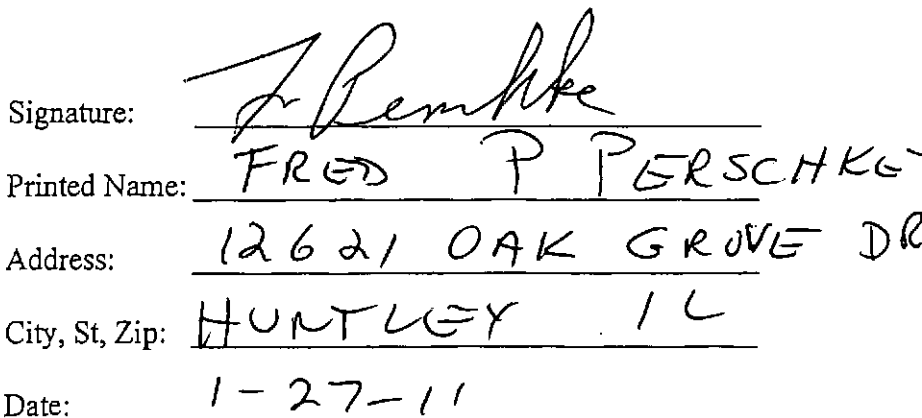 Signature:
Printed Name: FRED P PERSCHKE
Address: 12621 OAK GROVE DR
City, St, Zip: HUNTLEY IL
Date: 1-27-11